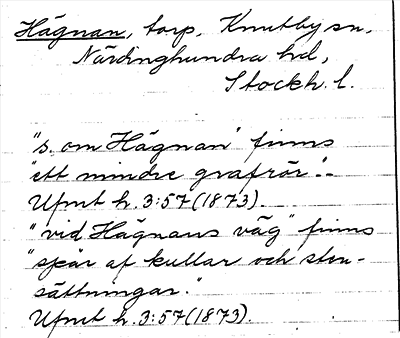 Hägnan, torp, Knutby sn,
Närdinghundra hd,
Stockh. l.
"s. om Hägnan" finns
"ett mindre grafrör."-
Ufmt h. 3:57 (1873).
"vid Hägnans väg" finns
"spår af kullar och sten-
sättningar."
Ufmt h. 3:57 (1873).